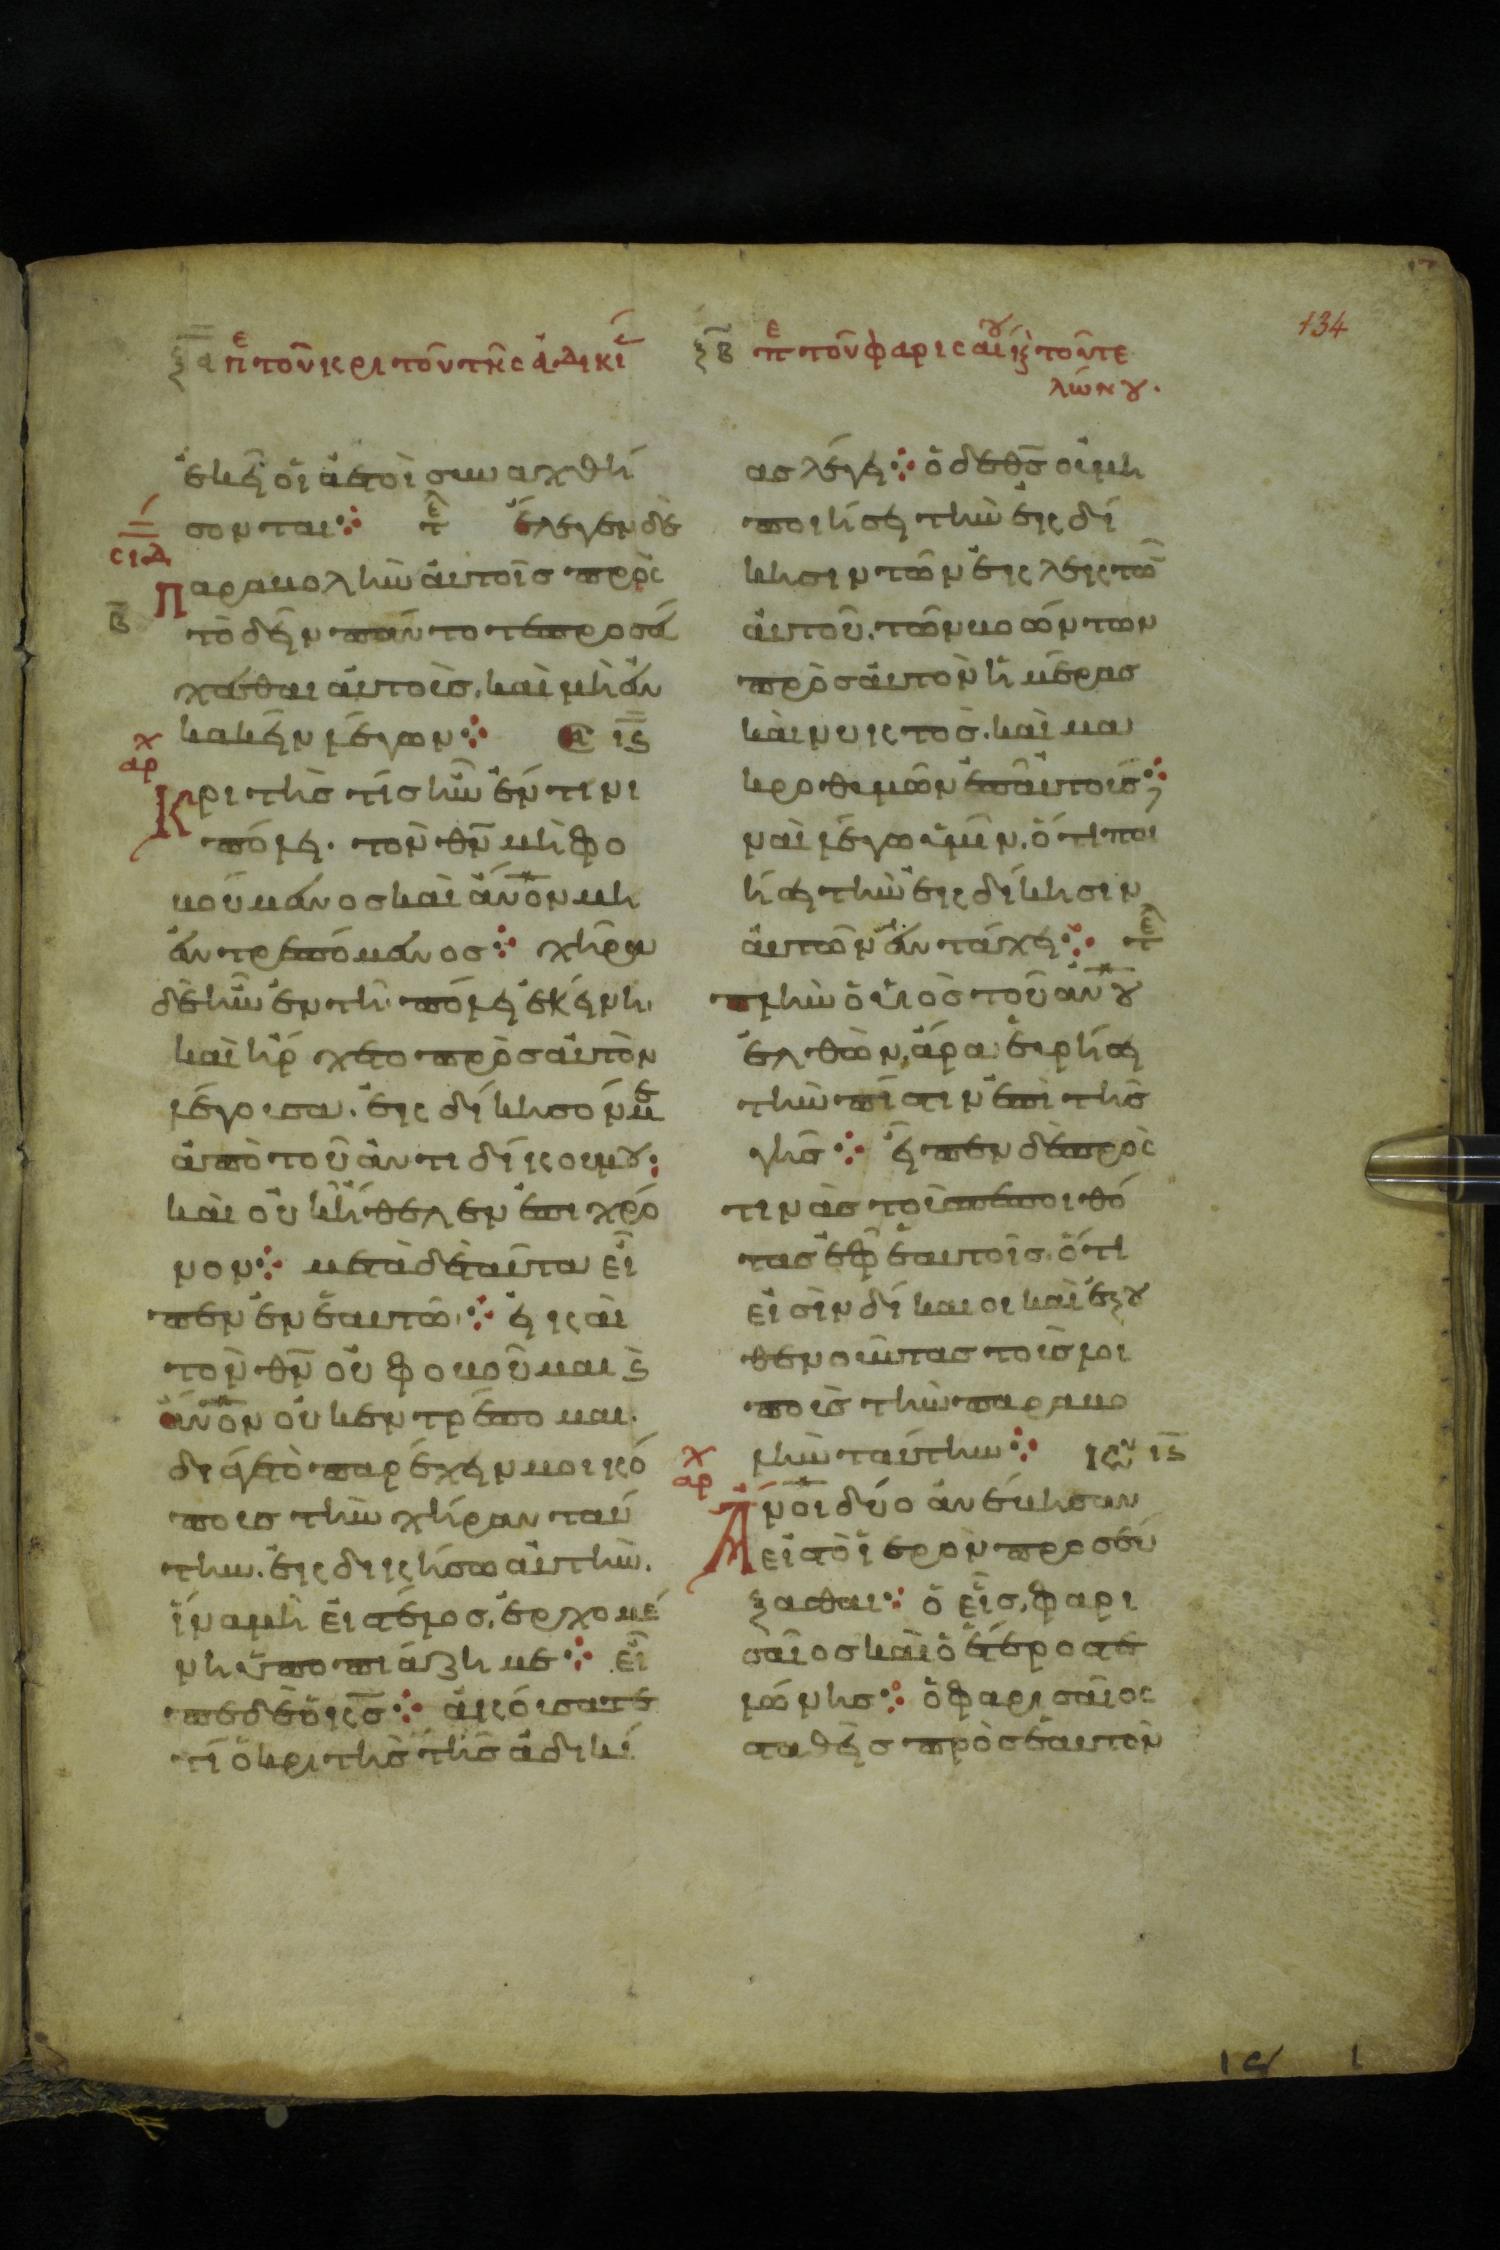 134
ξα πε τοῦ κριτοῦ τῆς ἀδικί
ξβ πε τοῦ φαρισαίου κ τοῦ τε
λώνου.
ἐκεῖ οἱ ἀετοὶ συναχθή
σονται⁘ τελ ἔλεγεν δὲ
σιδ
παραβολὴν αὐτοῖς πρὸς
β
τὸ δεῖν πάντοτε προσεύ
χεσθαι αὐτοὺς, καὶ μὴ ἐν
κακεῖν λέγων⁘ ις
χ
αρ
Κριτής τίς ἦν ἔν τινι
πόλει. τὸν θν μὴ φο
βούμενος καὶ ἄνον μὴ
ἐντρεπόμενος⁘ χήρα
δὲ ἦν ἐν τῆ πόλει ἐκείνη.
καὶ ἤρχετο πρὸς αὐτὸν
λέγουσα. ἐκδίκησόν με
ἀπὸ τοῦ ἀντιδίκου μου.
καὶ οὐκ ἤθελεν ἐπι χρό
νον⁘ μετὰ δὲ ταῦτα εἶ
πεν ἐν ἑαυτῶ⁘ εἰ καὶ
τὸν θν οὐ φοβοῦμαι κ
ἄνον οὐκ ἐντρέπομαι.
διά γε τὸ παρέχειν μοι κό
πους τὴν χήραν ταύ
την. ἐκδικήσω αὐτὴν.
ἵνα μὴ εἰς τέλος, ἐρχομέ
νη ὑποπιάζη με⁘ εἶ
πε δὲ ὁ κς⁘ ἀκούσατε
τί ὁ κριτὴς τῆς ἀδικί
ας λέγει⁘ ὁ δὲ θς οὐ μὴ
ποιήσει τὴν ἐκδί
κησιν τῶν ἐκλεκτῶ
αὐτοῦ. τῶν βοώντων
πρὸς αὐτὸν ἡμέρας
καὶ νυκτός. καὶ μα
κροθυμῶν ἐπ αὐτοῖς⁘
ναὶ λέγω ὑμῖν, ὅτι ποι
ήσει τὴν ἐκδίκησιν
αὐτῶν ἐν τάχει⁘ τελ
πλὴν ὁ υἱὸς τοῦ ανου
ἐλθὼν, ἆρα εὑρήσει
τὴν πίστιν ἐπὶ τῆς
γῆς⁘ εἶπεν δὲ πρὸς
τινὰς τοὺς πεποιθό
τας ἐφ ἑαυτοῖς ὅτι
εἰσὶν δίκαιοι καὶ ἐξου
θενοῦντας τοὺς λοι
ποὺς τὴν παραβο
λὴν ταύτην⁘ ις
χ
αρ
Ἄνοι δύο ἀνέβησαν
εἰς τὸ ἱερὸν προσεύ
ξασθαι⁘ ὁ εἷς, φαρι
σαῖος καὶ ὁ ἕτερος τε
λώνης⁘ ὁ φαρισαῖος
σταθεὶς πρὸς ἑαυτὸν